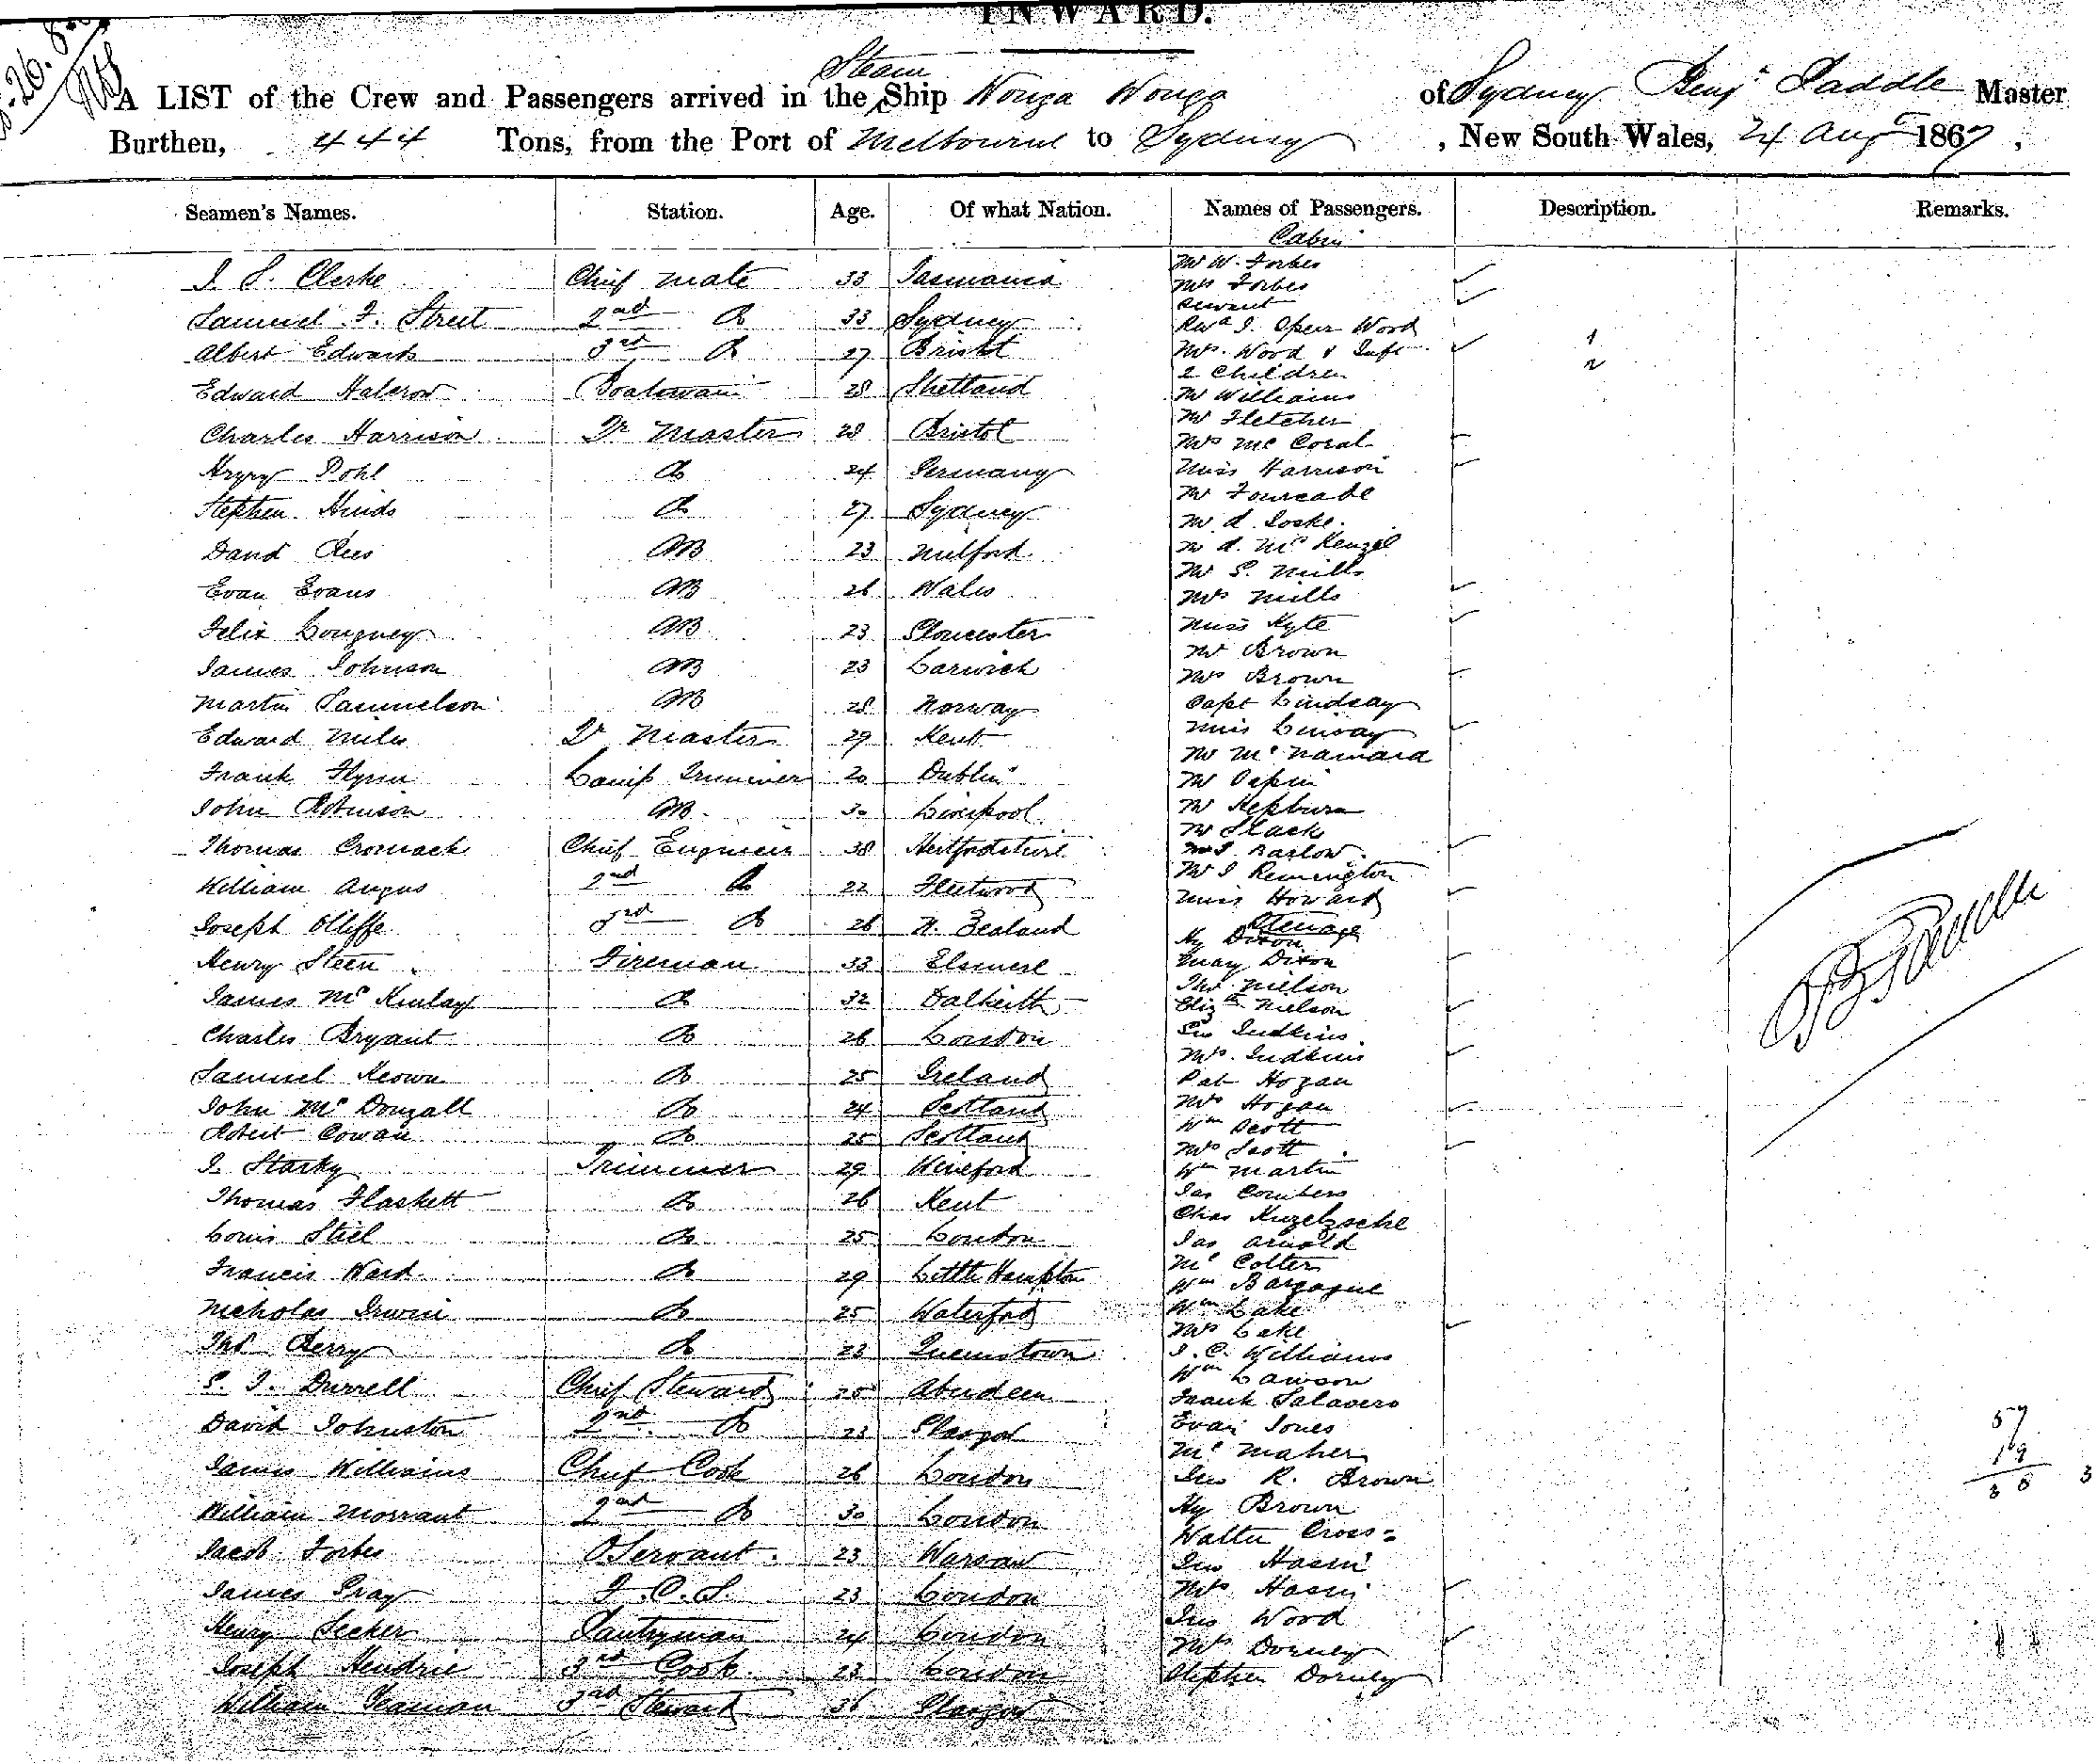 INWARD.
Steam
A LIST of the Crew and Passengers arrived in the Ship Wonga Wonga of Sydney Benj. Paddle Master
Burthen, 444 Tons, from the Port of Melbourne to Sydney, New South Wales, 24 Aug 1867,
Seamen's Names. Station. Age. Of what Nation. Names of Passengers. Description. Remarks.
Cabin
Clerke Chief Mate 33 Tasmania
Samuel F. Street 2nd Do 33 Sydney
Albert Edwards 3rd Do 27 Bristol
Edward Halcrow Boatswain 28 Shetland
Charles Harrison Qr Master 28 Bristol
Pohl Do 24 Germany
Stephen Hinds Do 27 Sydney
David Rees AB 23 Milford
Evan Evans AB 26 Wales
Felix AB 23 Gloucester
James Johnson AB 23 Larwich
Martin Samuelson AB 28 Norway
Edward Miles Qr Master 29 Kent
Frank Flynn Lamp Trimmer 20 Dublin
John Robinson AB 30 Liverpool
Thomas Cromack Chief Engineer 38 Hertfordshire
William Angus 2nd Do 22 Fleetwood
Joseph Olliffe 3rd Do 26 N. Zealand
Henry Steen Fireman 33 Elsmere
James McKinlay Do 32 Dalkeith
Charles Bryant Do 26 London
Samuel Keown Do 25 Ireland
John McDougall Do 24 Scotland
Robert Cowan Do 25 Scotland
J. Starky Trimmer 29 Hereford
Thomas Flaskett Do 26 Kent
Louis Stiel Do 25 London
Francis Ward Do 29 Little Hampton
Nicholas Irwin Do 25 Waterford
Thos Berry Do 23 Queenstown
Durrell Chief Steward 25 Aberdeen
David Johnston 2nd Do 23 Glasgow
James Williams Chief Cook 26 London
William Morrant 2nd Do 30 London
Jacob Forbes Servant 23 Warsaw
James Gray F.C.S. 23 London
Henry Secker Pantryman 24 London
Joseph Hendrie 3rd Cook 23 London
William Seaman 3rd Steward 36 Glasgow
Mr W. Forbes
Mrs Forbes
Servant
Revd J. Wood
Mrs. Wood & Inft 1
2 Children 2
Mr Williams
Mr Fletcher
Mrs McCoral
Miss Harrison
Mr Fourcade
Mr A. Loske
Mr A. McKenzie
Mr S. Mills
Mrs Mills
Miss Kyte
Mr Brown
Mrs Brown
Capt Lindsay
Miss
Mr McNamara
Mr Papin
Mr Hepburn
Mr Slack
Barlow
Mr J Remington
Miss Howard
Steerage
Hy Dixon
Mary Dixon
Thos Nielson
Elizth Nielson
Jno Judkins
Mrs. Judkins
Pat Hogan
Mrs Hogan
Wm Scott
Mrs Scott
Wm Martin
Jas Combers
Chas Kugelzsche
Jas Arnold
Mr Cotter
Wm
Wm Lake
Mrs Lake
J. C. Williams
Wm Lawson
Frank Salavers
Evan Jones
Mr Maher
Jno R. Brown
Hy Brown
Walter Cross
Jno Hassin
Mrs Hassin
Jno Wood
Mrs Dornley
Stephen Dornley
57
19
38